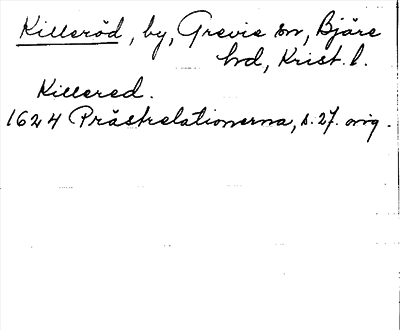 Killeröd, by, Grevie sn, Bjäre
hd, Krist. l.
Killered.
1624 Prästrelationerna, s. 27. orig.